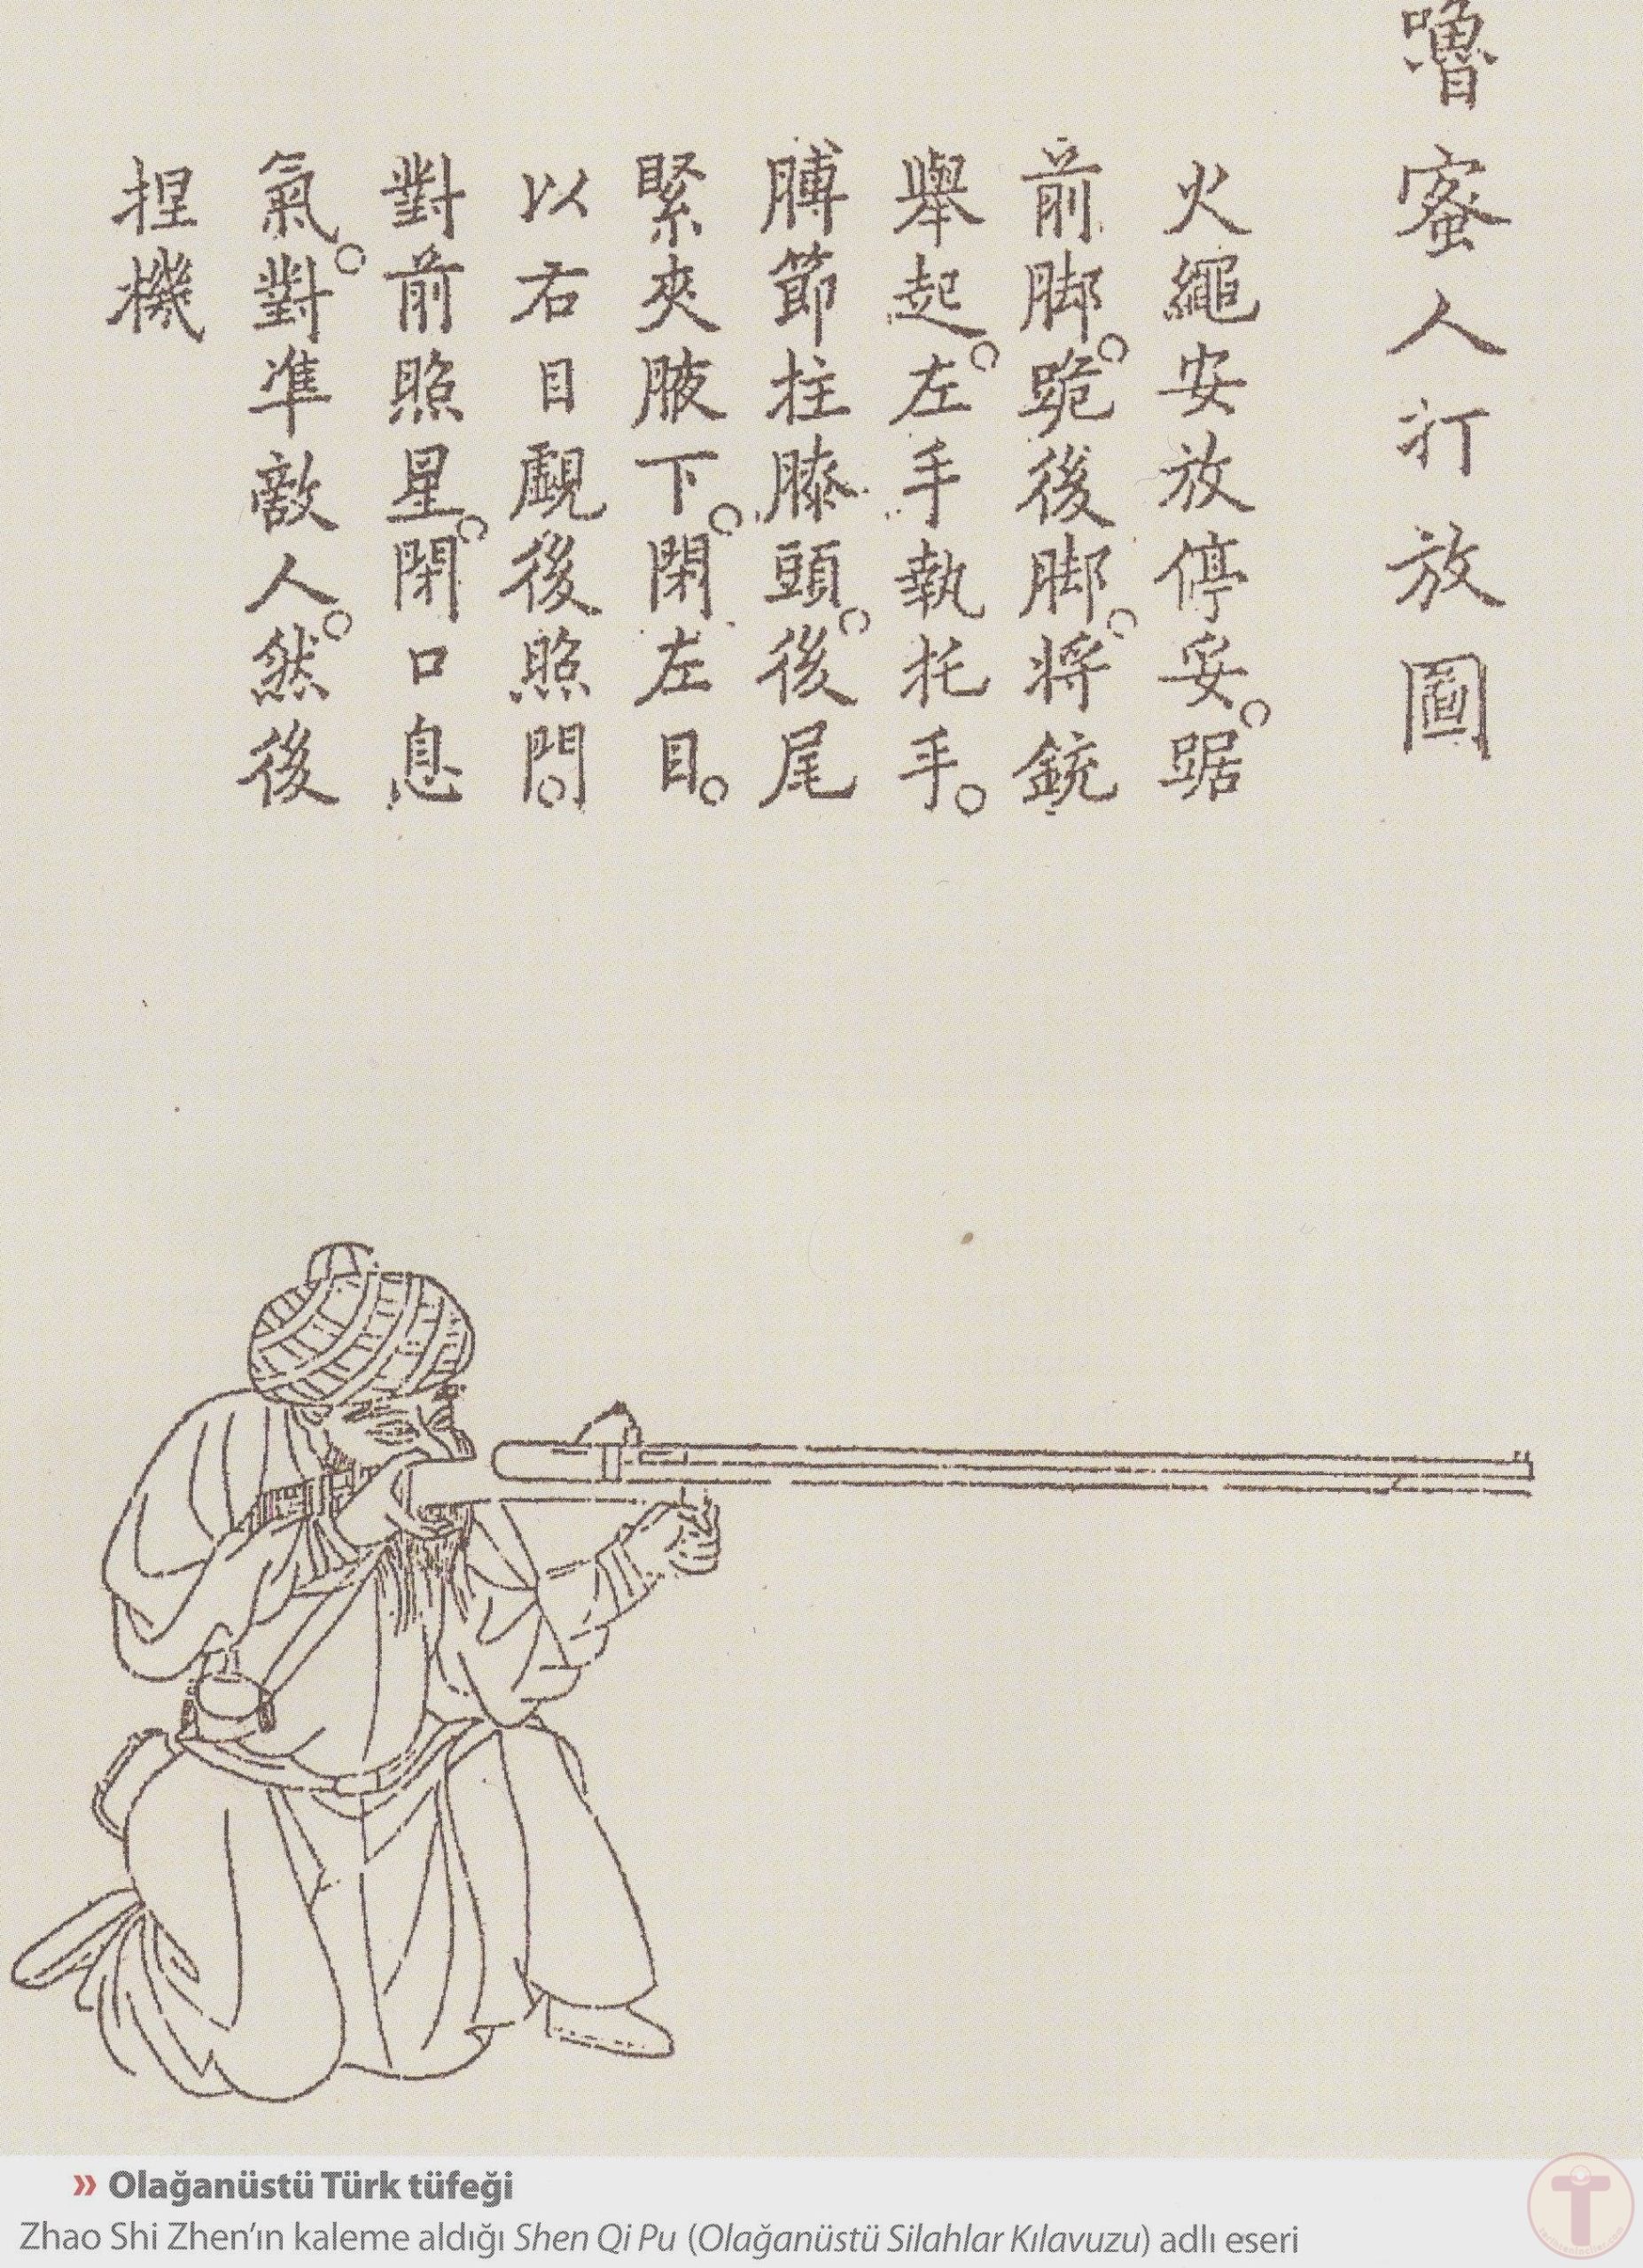 嚕蜜人打放圖
火繩安放停妥。踞
前脚。跪後脚。將銃
舉起。左手執托手。
膊節拄膝頭。後尾
緊夾腋下。閉左目。
以右目覷後照門。
對前照星。閉口息
氣。對准敵人。然後
捏機
» Olağanüstü Türk tüfeği
Zhao Shi Zhen’ın kaleme aldığı Shen Qi Pu (Olağanüstü Silahlar Kılavuzu) adlı eseri
T